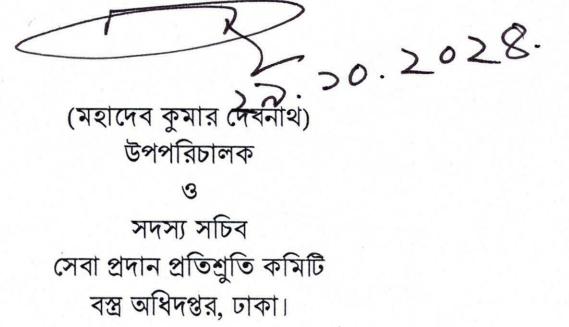 ২৯.১০.২০২৪.
(মহাদেব কুমার দেবনাথ)
উপপরিচালক
ও
সদস্য সচিব
সেবা প্রদান প্রতিশ্রুতি কমিটি
বস্ত্র অধিদপ্তর, ঢাকা।